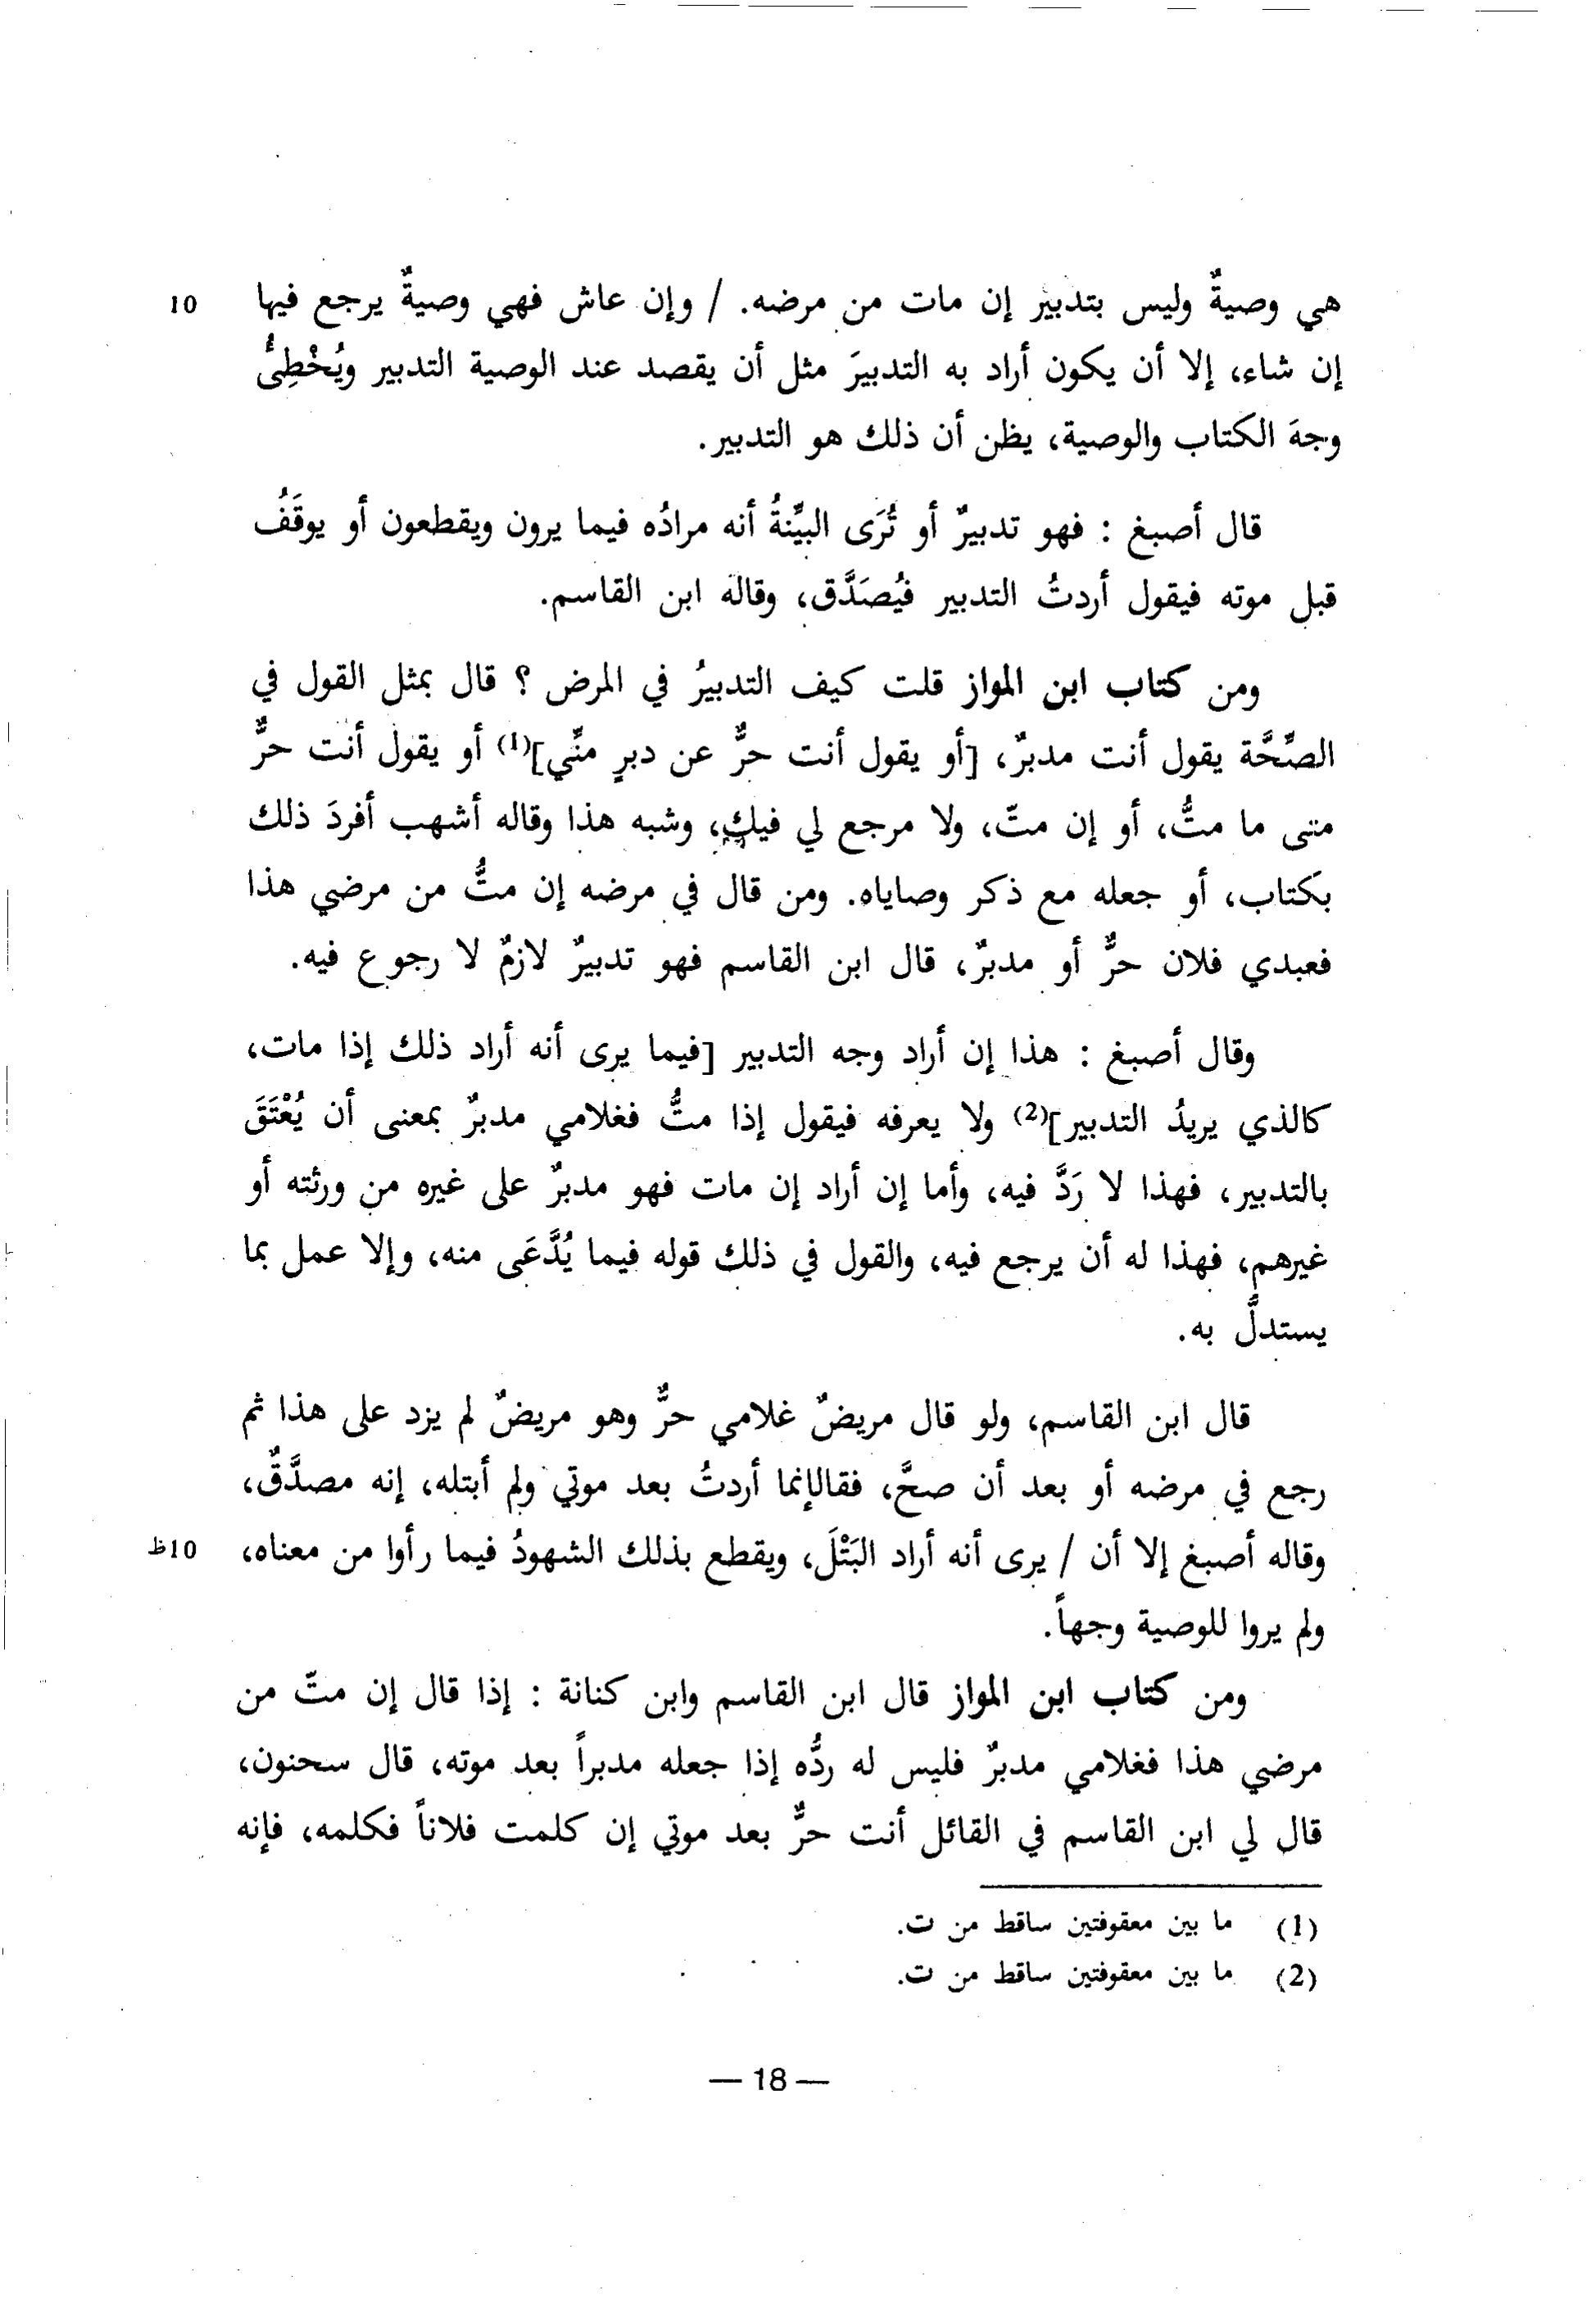 هي وصيةٌ وليس بتدبير إن مات من مرضه. / وإن عاش فهي وصيةٌ يرجع فيها 10
إن شاء، إلا أن يكون أراد به التدبيرَ مثل أن يقصد عند الوصية التدبير ويُخْطِئُ
وجهَ الكتاب والوصية، يظن أن ذلك هو التدبير.
قال أصبغ : فهو تدبيرٌ أو تُرَى البيِّنةُ أنه مرادُه فيما يرون ويقطعون أو يوقَفُ
قبل موته فيقول أردتُ التدبير فيُصَدَّق، وقاله ابن القاسم.
ومن كتاب ابن المواز قلت كيف التدبيرُ في المرض ؟ قال بمثل القول في
الصِّحَّة يقول أنت مدبرٌ، [أو يقول أنت حرٌّ عن دبرٍ منِّي](1) أو يقول أنت حرٌّ
متى ما متُّ، أو إن متّ، ولا مرجع لي فيك، وشبه هذا وقاله أشهب أفردَ ذلك
بكتاب، أو جعله مع ذكر وصاياه. ومن قال في مرضه إن متُّ من مرضي هذا
فعبدي فلان حرٌّ أو مدبرٌ، قال ابن القاسم فهو تدبيرٌ لازمٌ لا رجوع فيه.
وقال أصبغ : هذا إن أراد وجه التدبير [فيما يرى أنه أراد ذلك إذا مات،
كالذي يريدُ التدبير](2) ولا يعرفه فيقول إذا متُّ فغلامي مدبرٌ بمعنى أن يُعْتَقَ
بالتدبير، فهذا لا رَدَّ فيه، وأما إن أراد إن مات فهو مدبرٌ على غيره من ورثته أو
غيرهم، فهذا له أن يرجع فيه، والقول في ذلك قوله فيما يُدَّعَى منه، وإلا عمل بما
يستدلَّ به.
قال ابن القاسم، ولو قال مريضٌ غلامي حرٌّ وهو مريضٌ لم يزد على هذا ثم
رجع في مرضه أو بعد أن صحَّ، فقالإنما أردتُ بعد موتي ولم أبتله، إنه مصدَّقٌ،
وقاله أصبغ إلا أن / يرى أنه أراد البَتْلَ، ويقطع بذلك الشهودُ فيما رأوا من معناه، 10ظ
ولم يروا للوصية وجهاً.
ومن كتاب ابن المواز قال ابن القاسم وابن كنانة : إذا قال إن متّ من
مرضي هذا فغلامي مدبرٌ فليس له ردُّه إذا جعله مدبراً بعد موته، قال سحنون،
قال لي ابن القاسم في القائل أنت حرٌّ بعد موتي إن كلمت فلاناً فكلمه، فإنه
(1) ما بين معقوفتين ساقط من ت.
(2) ما بين معقوفتين ساقط من ت.
— 18 —